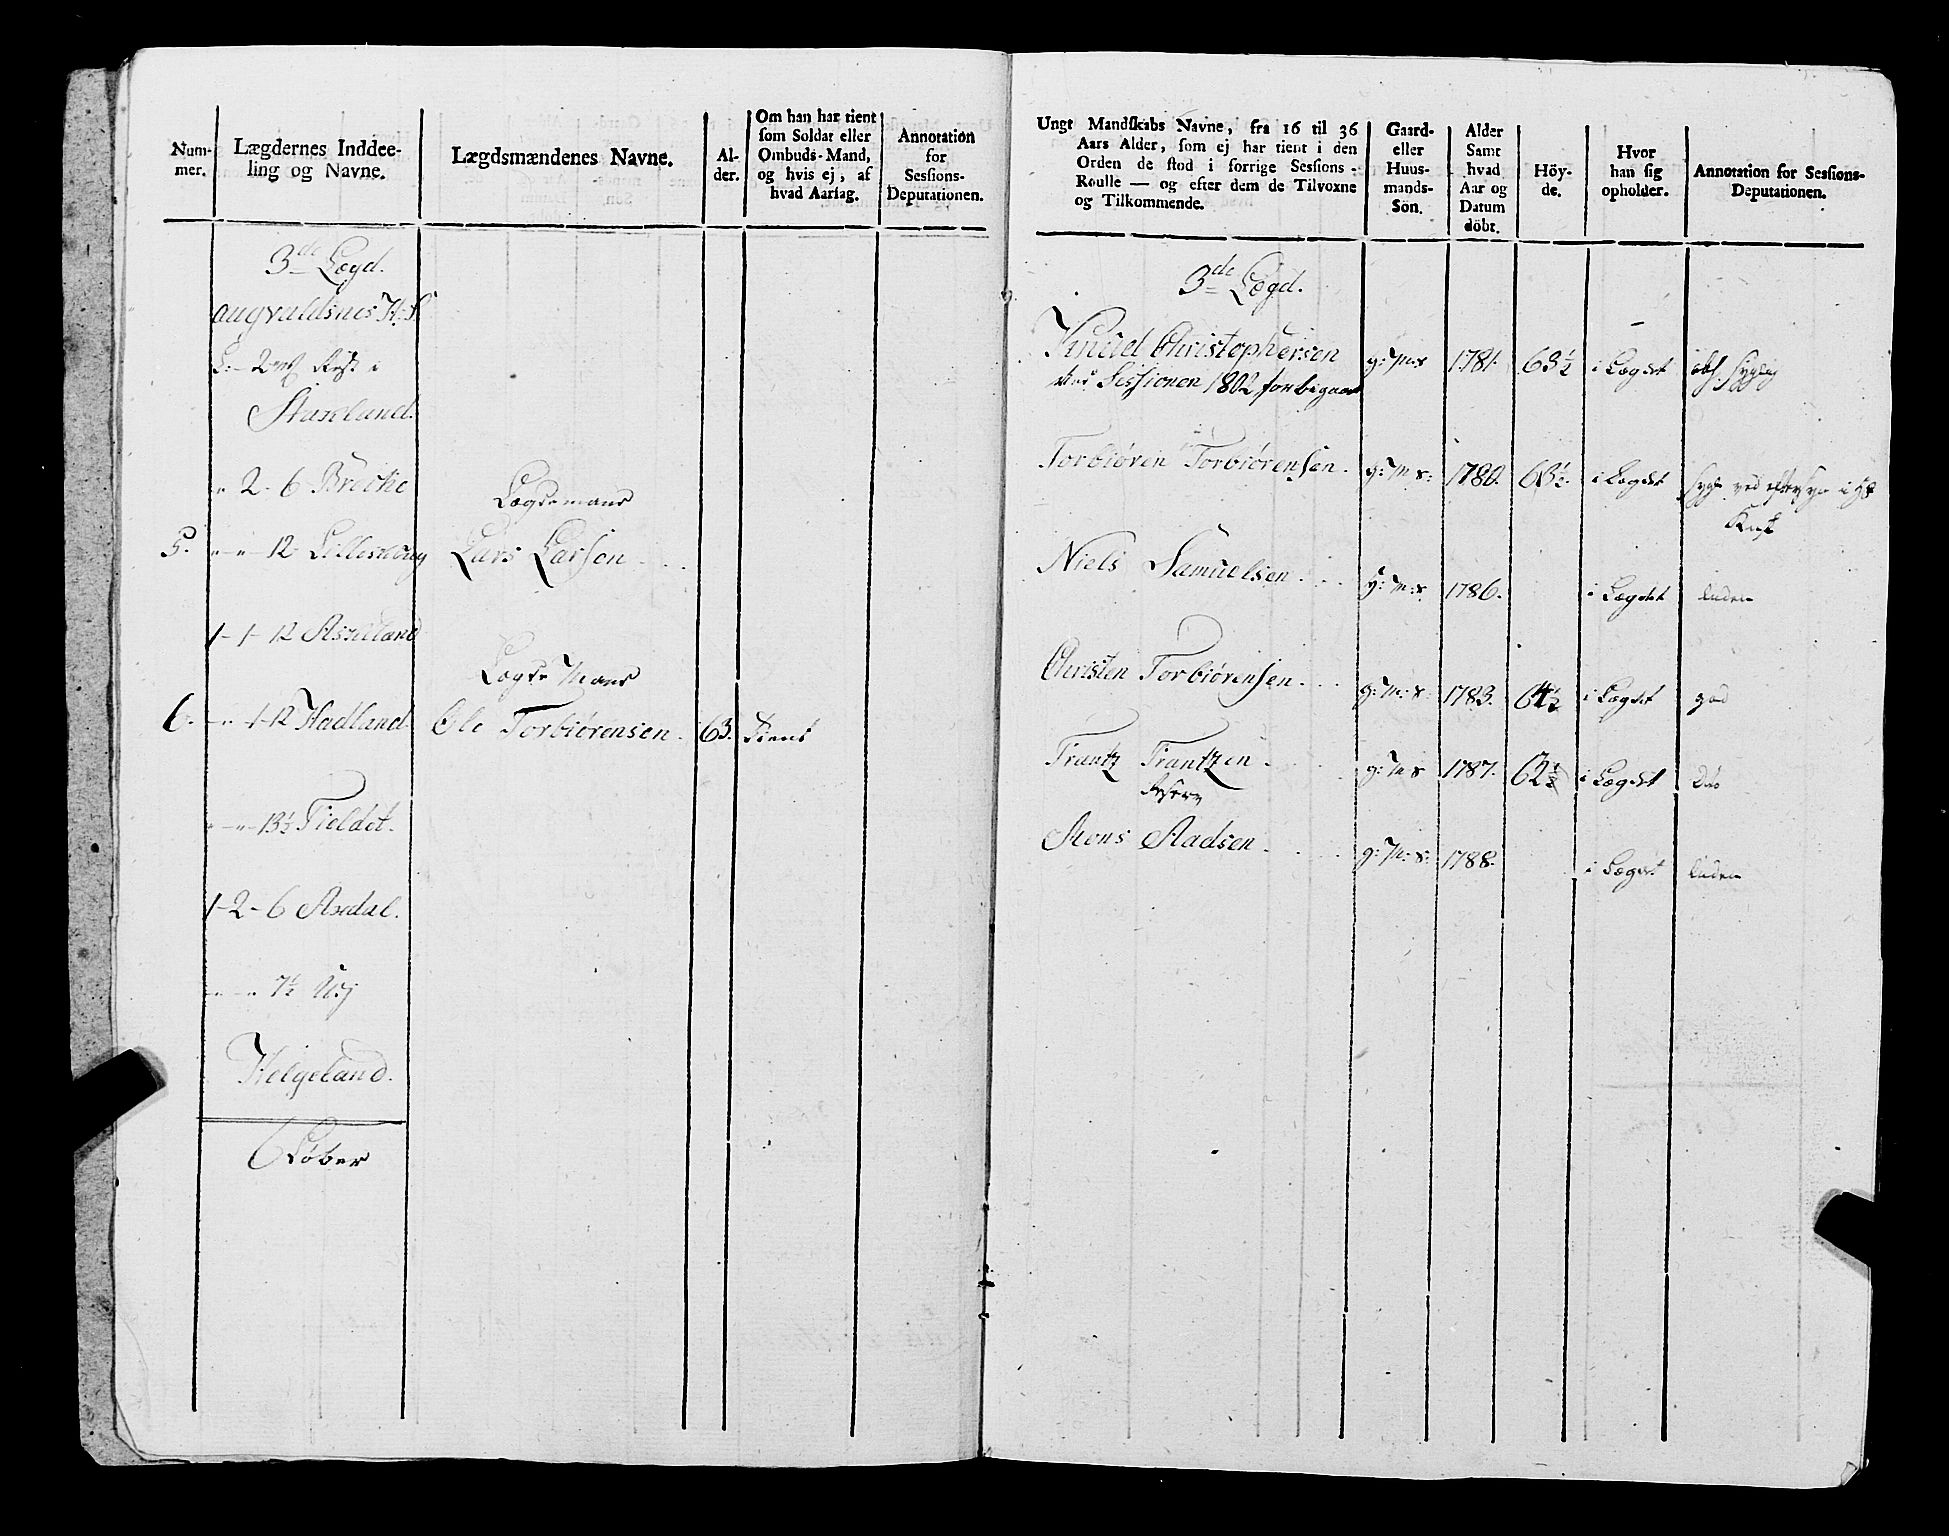 Num-
mer.
Lægdernes Inddee-
ling og Navne.
Lægdsmændenes Navne.
Al-
der.
Om han har tient
som Soldat eller
Ombuds-Mand,
og hvis ej, af
hvad Aarsag.
Annotation
for
Sessions-
Deputationen.
3de Lægd.
augvaldsnes
Rest i
2 - 6
5.
12
Lægdsmand
Lars Larsen
1 - 1 - 12
6.
1-12 Hadland
Lægds Mand
Ole Torbiörensen. 63. Tient
13½ Fieldet.
1-2-6
7½
Helgeland.
6 Löber
Ungt Mandskabs Navne, fra 16 til 36
Aars Alder, som ej har tient i den
Orden de stod i forrige Sessions-
Roulle — og efter dem de Tilvoxne
og Tilkommende.
Gaard-
eller
Huus-
mands-
Sön.
Alder
Samt
hvad
Aar og
Datum
döbt.
Höy-
de.
Hvor
han sig
opholder.
Annotation for Sessions-
Deputationen.
3de Lægd.
Knud Christophersen g: M: s 1781. 63½ i Lægdet
ved Sessionen 1802 forbigaaet
Torbiören Torbiörensen. g: M: s: 1780. 63½. i Lægdet
Niels Samuelsen. g: M: s 1786. i Lægdet liden
Christen Torbiörensen. g: M: s 1783. 64½ i Lægdet god
Frantz Frantzen. g: M: s 1787. 62½ i Lægdet Dito
Mons Aadsen. g: M: s: 1788. i Lægdet liden